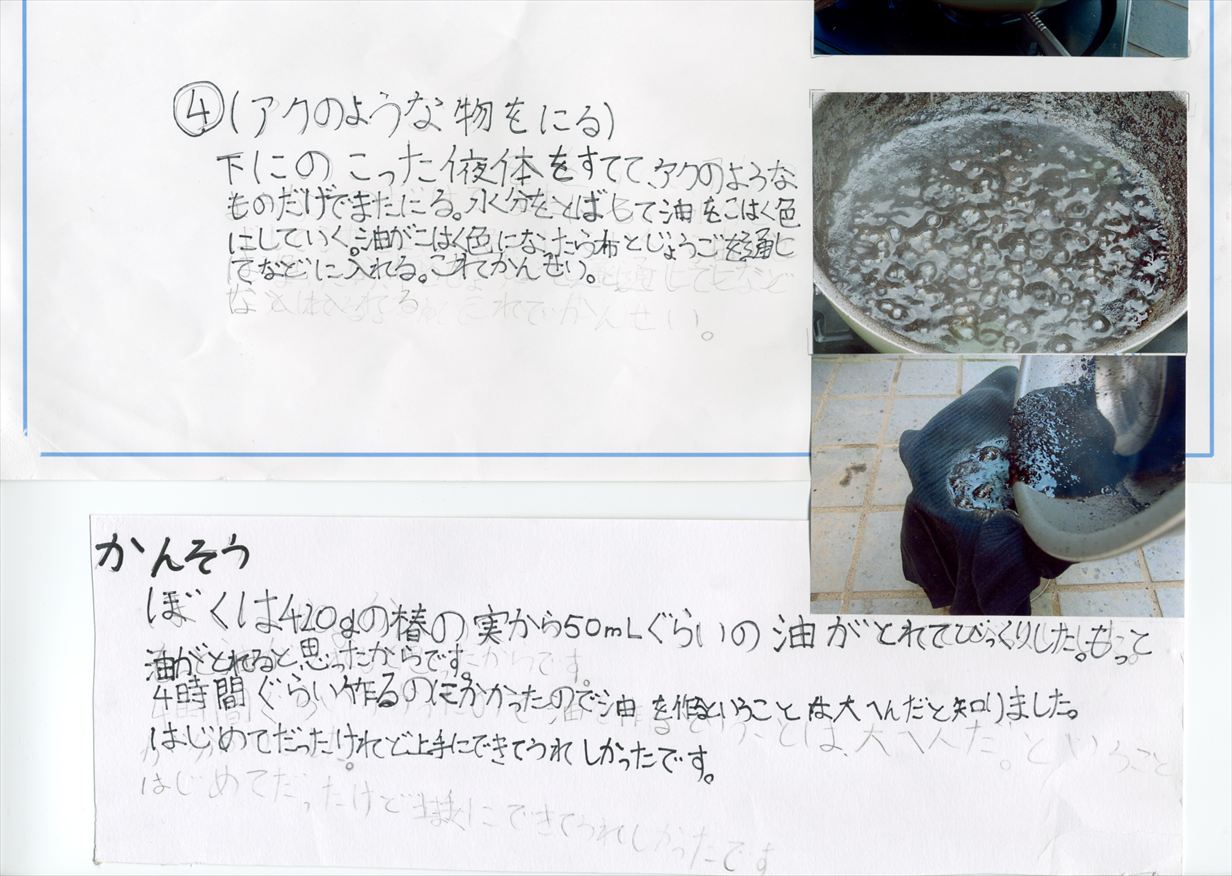 ④(アクのような物をにる)
下にのこった液体をすてて、アクのような
ものだけでまたにる。水分をとばして油をこはく色
にしていく。油がこはく色になったら布とじょうごを通し
てなどに入れる。これでかんせい。
かんそう
ぼくは420gの椿の実から50mLぐらいの油がとれてびっくりした。もっと
油がとれると思ったからです。
4時間ぐらい作るのにかかったので油を作るということは大へんだと知りました。
はじめてだったけれど上手にできてうれしかったです。
はじめてだったけど上手にできてうれしかったです